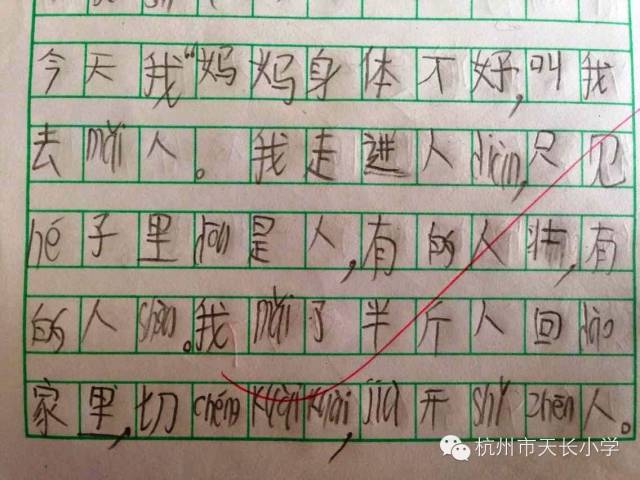 今天我"妈妈身体不好,叫我
去mǎi人。我走进人diàn,只见
hé子里dōu是人,有的人壮,有
的人shòu。我mǎi了半斤人回dào
家里,切chéng kuài kuài,jiā开shuǐ zhēn人。
杭州市天长小学